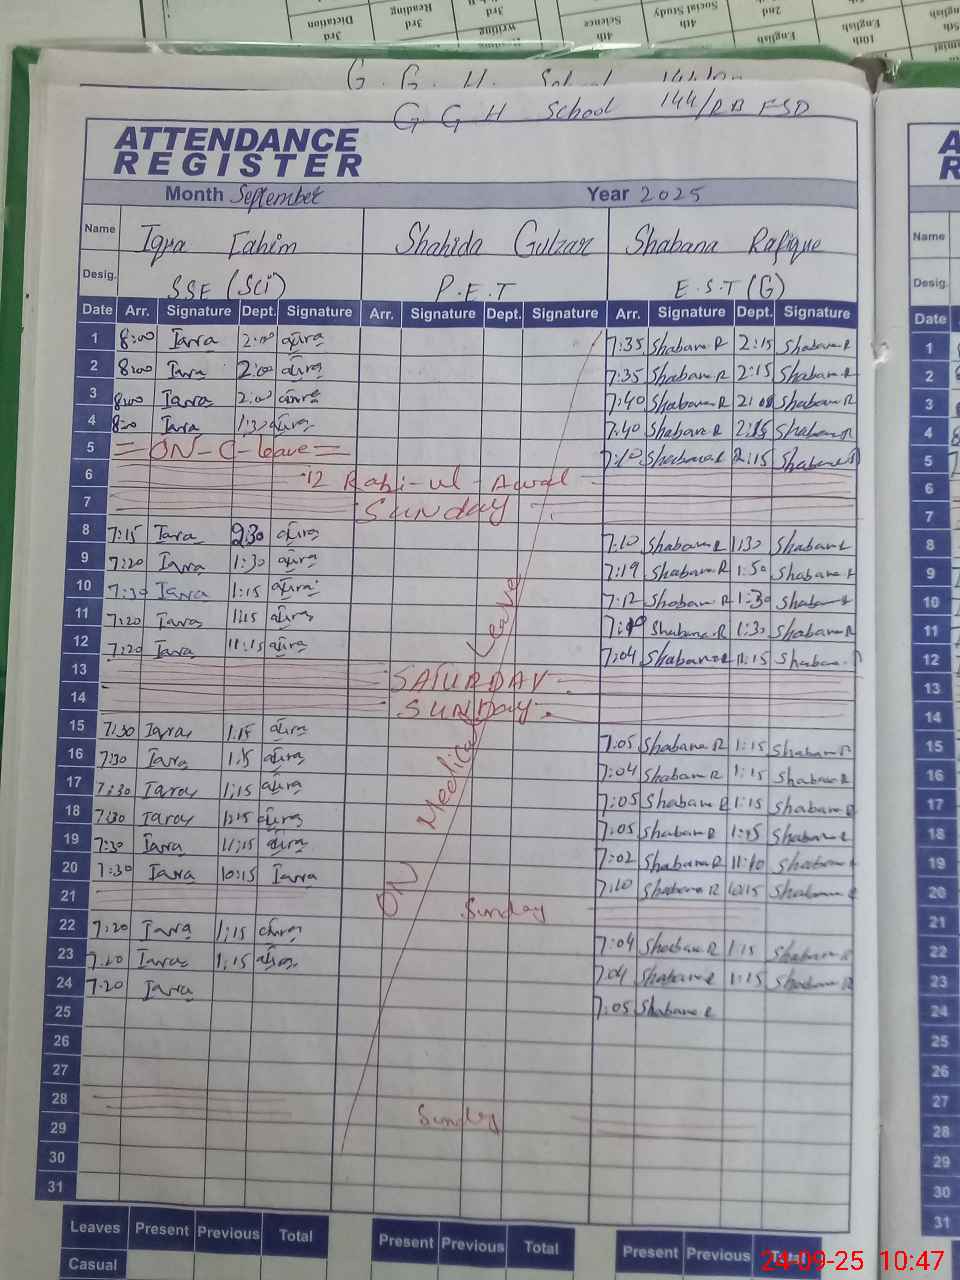 3rd Dictation
3rd Reading
3rd writing
4th Science
4th Social Study
4th English
2nd English
10th English
G. G. H. School 144/RB
G G H School 144/RB FSD
ATTENDANCE
REGISTER
Month September Year 2025
Name Iqra Fahim Shahida Gulzar Shabana Rafique Name
Desig. SSE (Sci) P.E.T E.S.T (G) Desig.
Date Arr. Signature Dept. Signature Arr. Signature Dept. Signature Arr. Signature Dept. Signature Date
1 8:00 Iqra 2:00 Iqra 7:35 Shabana R 2:15 Shabana R 1
2 8:00 Iqra 2:00 Iqra 7:35 Shabana R 2:15 Shabana R 2
3 8:00 Iqra 2:00 Iqra 7:40 Shabana R 2:00 Shabana R 3
4 8:00 Iqra 1:30 Iqra 7:40 Shabana R 2:15 Shabana R 4
5 = ON-C-leave = 7:10 Shabana R 2:15 Shabana R 5
6 12 Rabi-ul-Awal 6
7 Sunday 7
8 7:15 Iqra Iqra 7:10 Shabana R 1:30 Shabana R 8
9 7:20 Iqra 1:30 Iqra 7:19 Shabana R 1:50 Shabana R 9
10 7:30 Iqra 1:15 Iqra 7:12 Shabana R 1:30 Shabana R 10
11 7:20 Iqra 1:15 Iqra Shabana R 1:30 Shabana R 11
12 7:20 Iqra 11:15 Iqra 7:04 Shabana R 11:15 Shabana R 12
13 SATURDAY 13
14 SUNDAY 14
15 7:30 Iqra 1:15 Iqra 7:05 Shabana R 1:15 Shabana R 15
16 7:30 Iqra 1:15 Iqra 7:04 Shabana R 1:15 Shabana R 16
17 7:30 Iqra 1:15 Iqra 7:05 Shabana R 1:15 Shabana R 17
18 7:30 Iqra 12:15 Iqra 7:05 Shabana R Shabana R 18
19 7:30 Iqra 11:15 Iqra 7:02 Shabana R 11:10 Shabana R 19
20 7:30 Iqra 10:15 Iqra 7:10 Shabana R 10:15 Shabana R 20
21 Sunday 21
22 7:20 Iqra 1:15 Iqra 7:04 Shabana R 1:15 Shabana R 22
23 7:20 Iqra 1:15 Iqra 7:04 Shabana R 1:15 Shabana R 23
24 7:20 Iqra 7:05 Shabana R 24
25 25
26 26
27 27
28 Sunday 28
29 29
30 30
31 31
ON Medical Leave
Leaves Present Previous Total Present Previous Total Present Previous Total
Casual
24-09-25 10:47